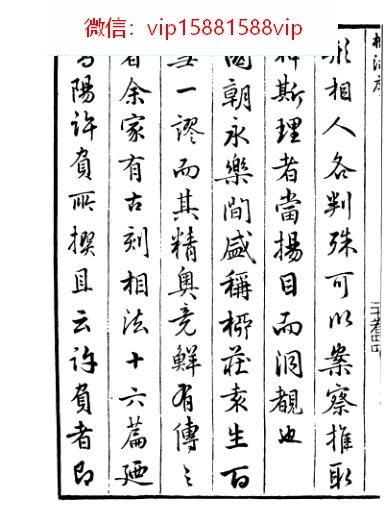 微信：vip15881588vip
形相人各判殊可以案察推取
斯理者當揚目而洞覩也
國朝永樂間盛稱柳莊袁生百
無一謬而其精奧竟鮮有傳之
者余家有古刻相法十六篇廼
陽許負所撰且云許負者即